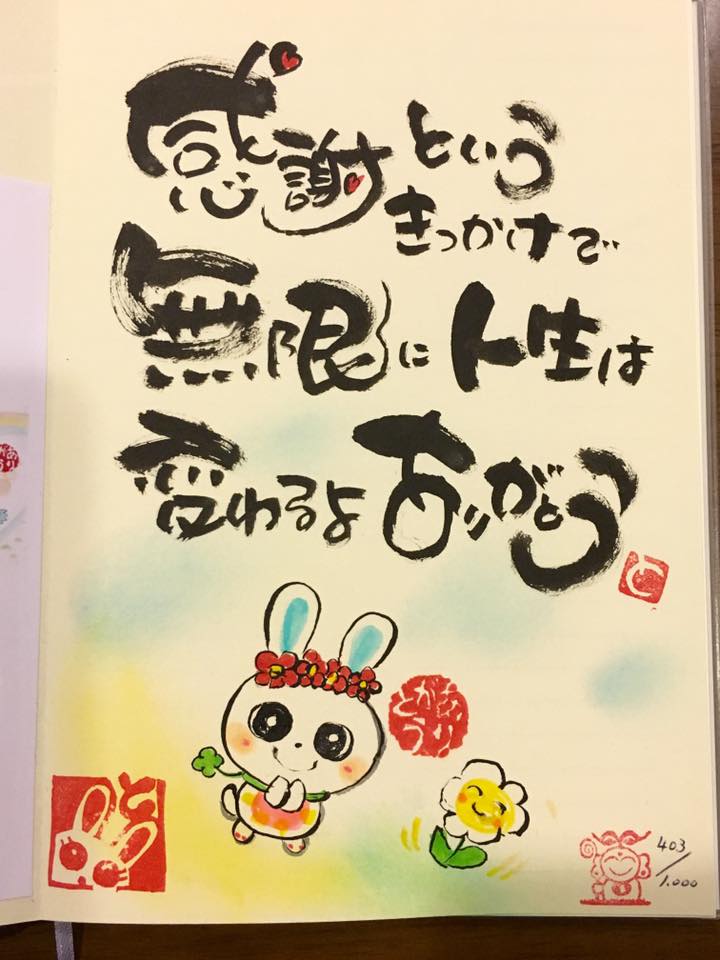 感謝という
きっかけで
無限に人生は
変わるよありがとう
と
ありがとう
と
403/1.000